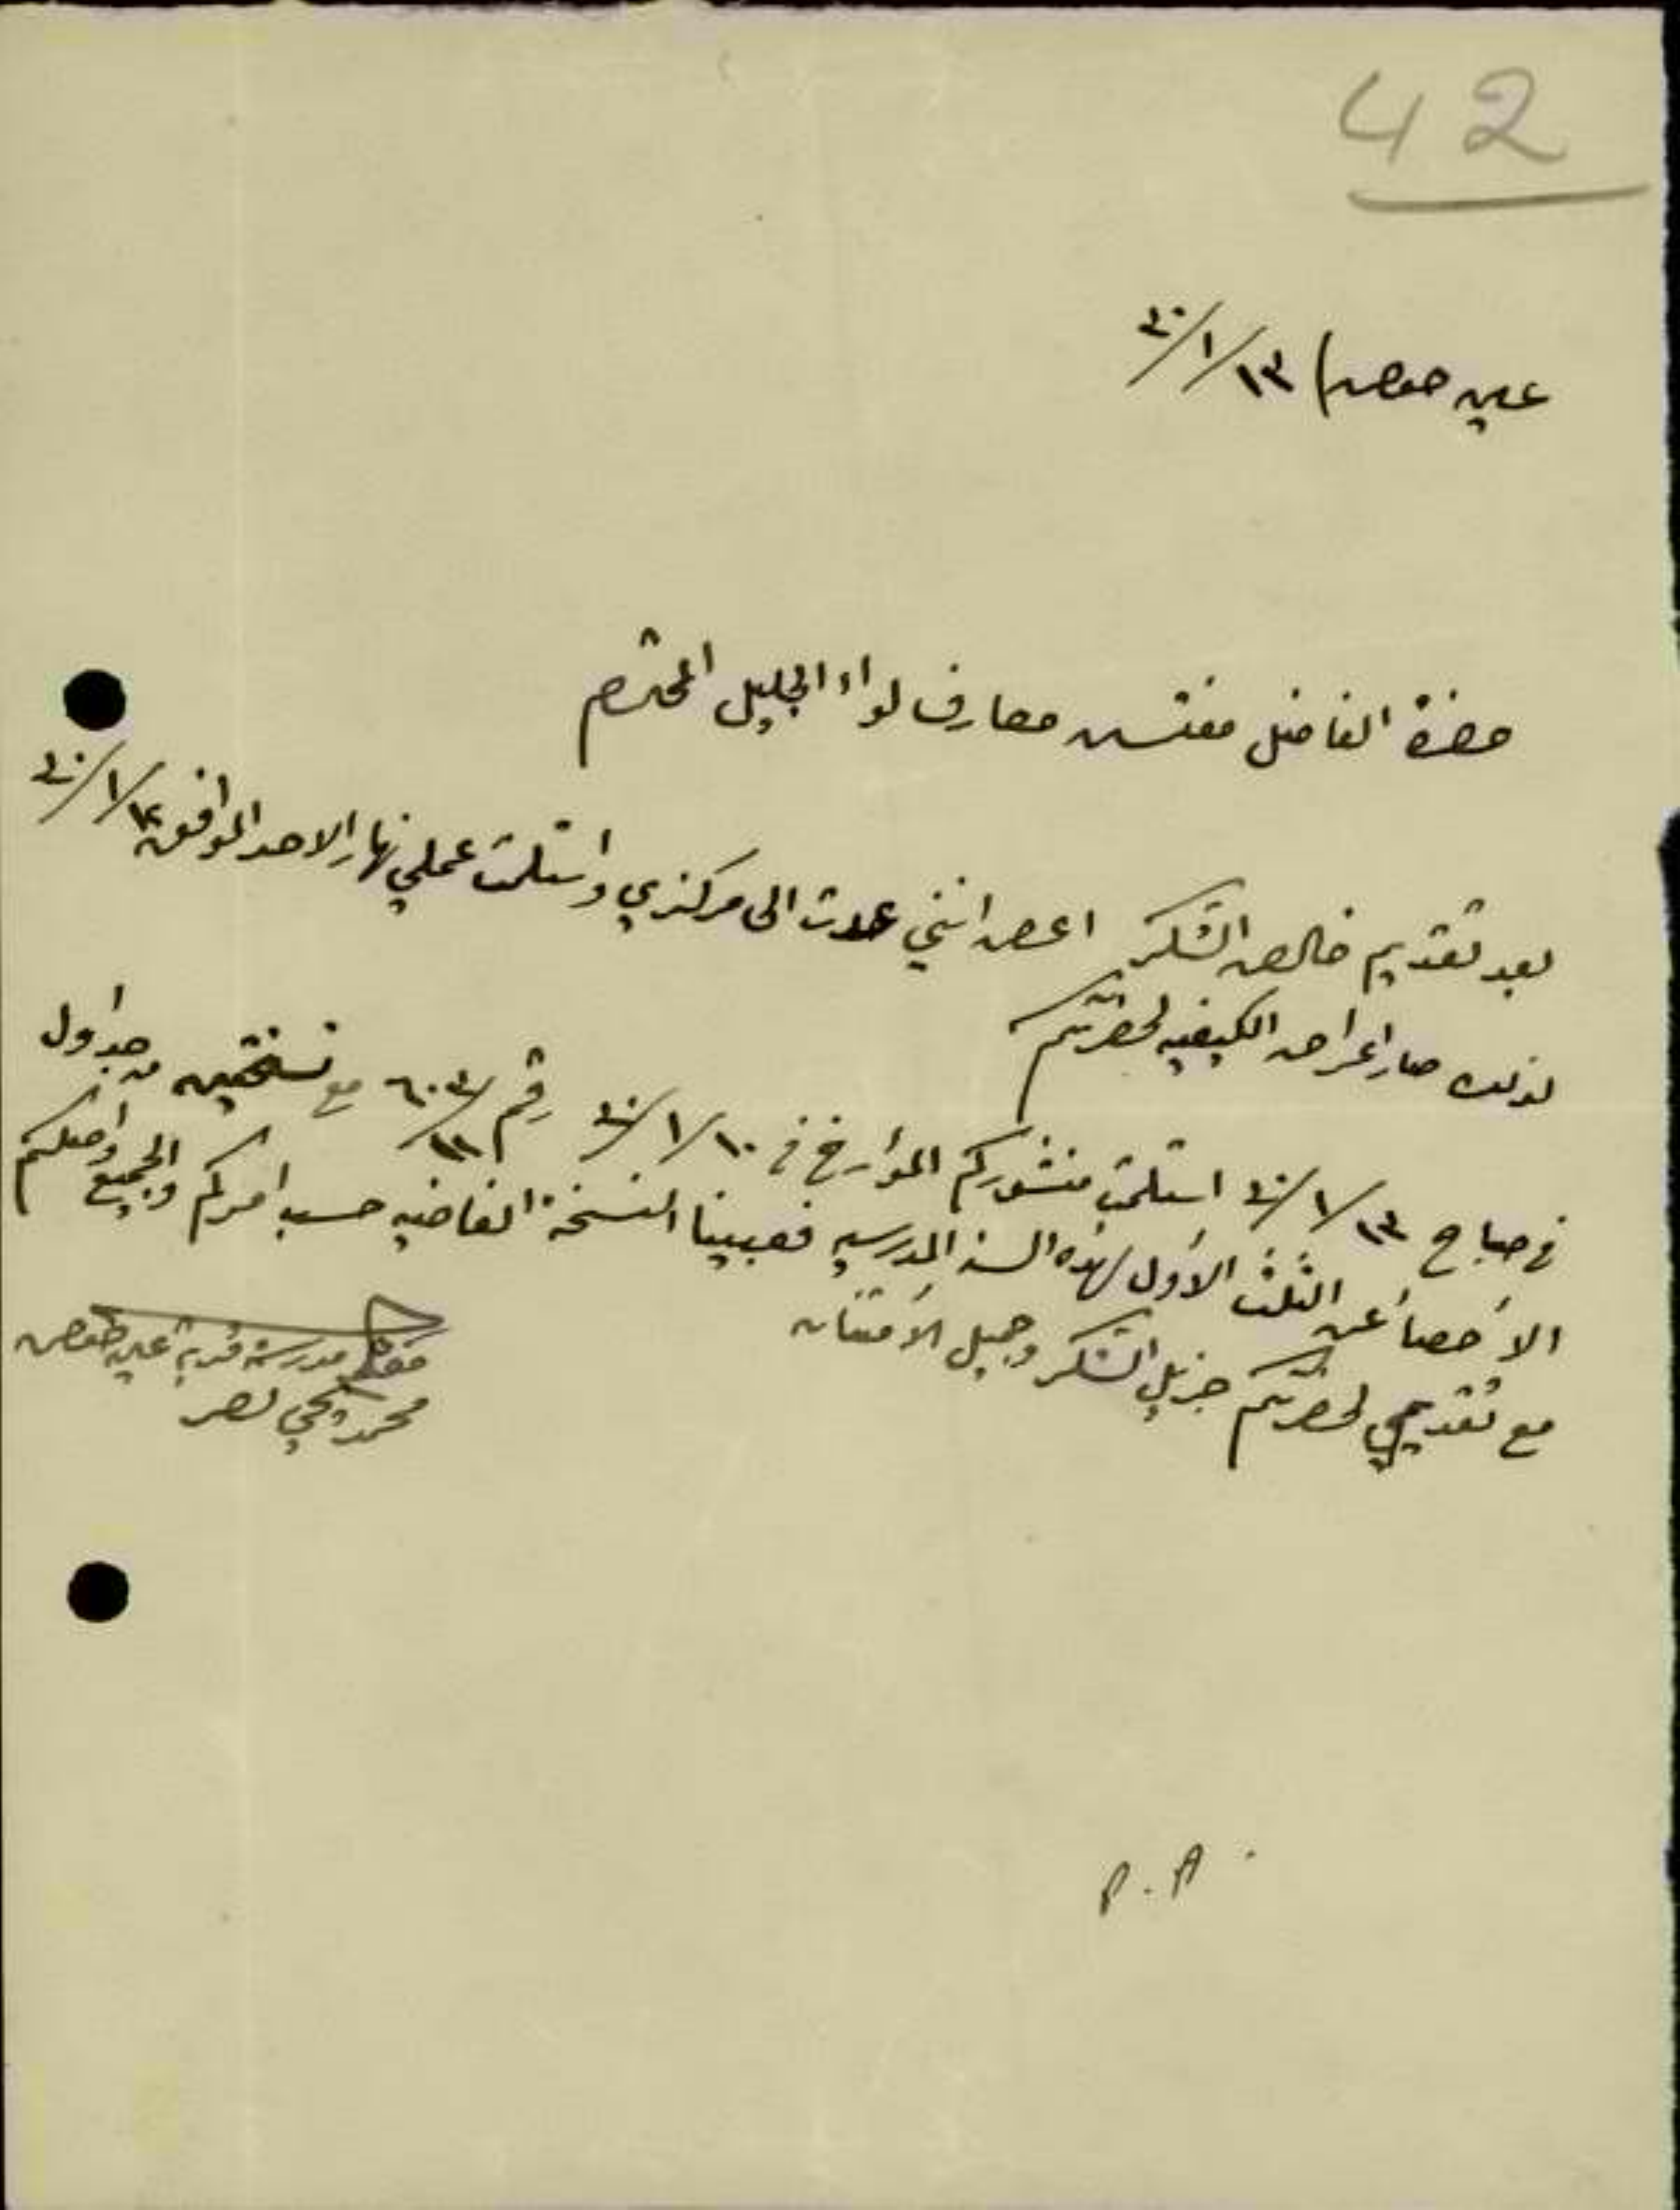 42
عين حوض) ١٣/١/٤٠
حضرة الفاضل مفتش معارف لواء الجليل المحترم
بعد تقديم خالص الشكر اعرض انني عدت الى مركزي واستلمت عملي نهار الاحد الموافق /١/٤٠
لذلك صار اعراض الكيفيه لحضرتكم
في صباح ١٣/١/٤٠ استلمت منشوركم المؤارخ في ١٠/١/٤٠ رقم مع نسختين من جداول
الأحصا عن الثلث الأول لهذه السنه المدرسيه فعبينا النسخة الفاضيه حسب امركم والجميع واصلكم
مع تقديمي لحضرتكم جزيل الشكر وجميل الأمتنان
مدرسة قرية عين حوض
محمد يحي نصر
P.A.